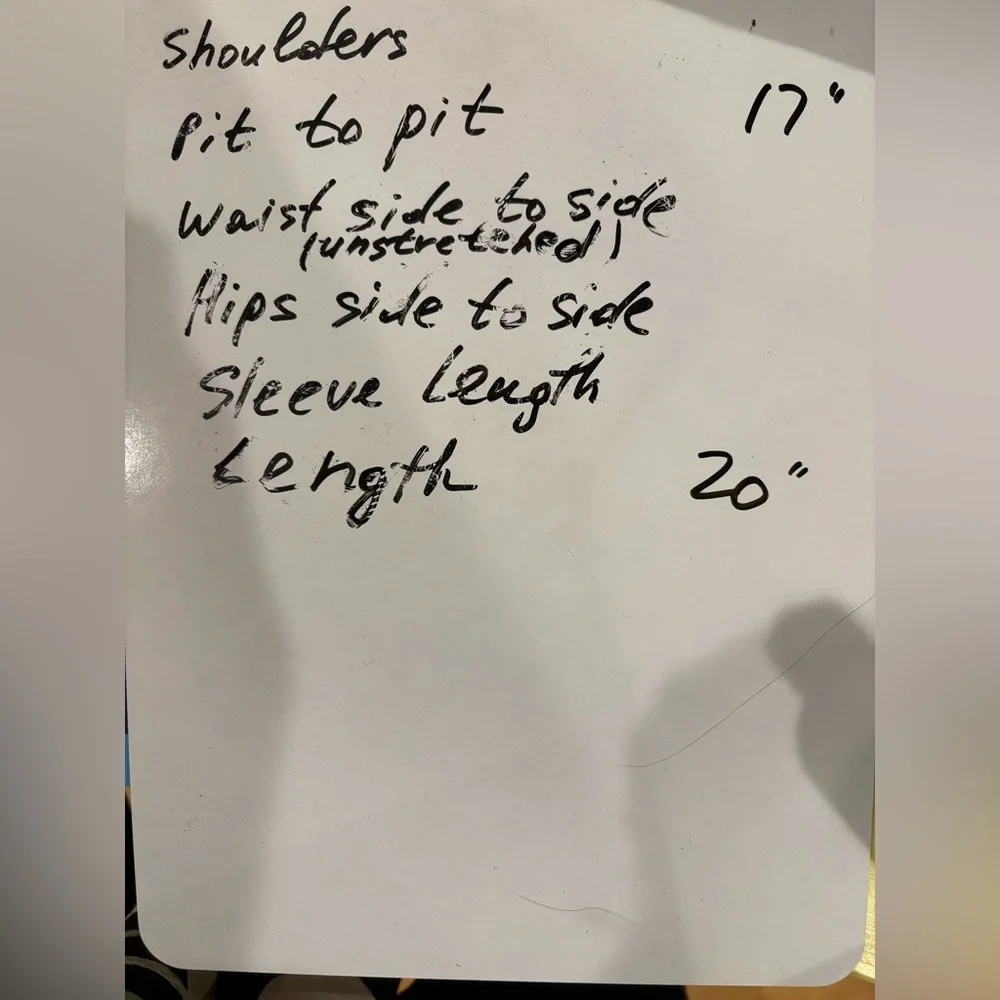 Shoulders
Pit to pit 17"
Waist side to side
(unstretched)
Hips side to side
Sleeve Length
Length 20"